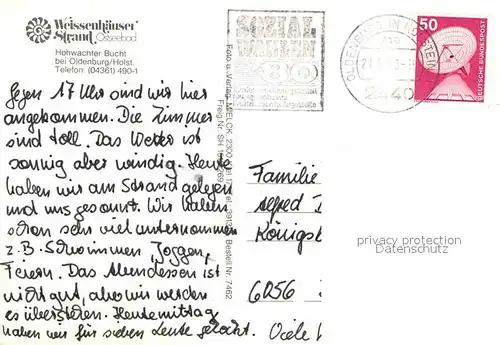 Weissenhäuser
Strand Ostseebad
Hohwachter Bucht
bei Oldenburg/Holst.
Telefon: (04361) 490-1
Gegen 17 Uhr sind wir hier
angekommen. Die Zimmer
sind toll. Das Wetter ist
sonnig aber windig. Heute
haben wir am Strand gelegen
und uns gesonnt. Wir haben
schon sehr viel unternommen
z.B. Schwimmen, Joggen,
Feiern. Das Abendessen ist
nicht gut, aber wir werden
es überstehen. Heute mittag
haben wir für sieben Leute gekocht. Viele
Foto u. Verlag: MIELCK, 2300 Kiel
Freig.Nr. SH
Bestell.Nr. 7462
SOZIAL
WAHLEN
80
OLDENBURG IN HOLSTEIN
2440
50
DEUTSCHE BUNDESPOST
Familie
Alfred
Königsb
6256
privacy protection
Datenschutz